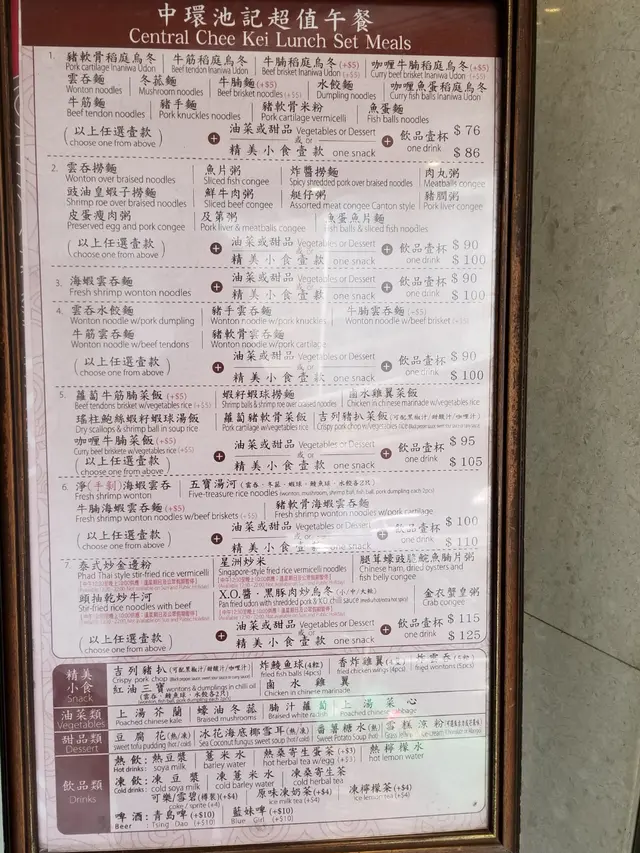 中環池記超值午餐
Central Chee Kei Lunch Set Meals
1. 豬軟骨稻庭烏冬 牛筋稻庭烏冬 牛腩稻庭烏冬 (+$5) 咖喱牛腩稻庭烏冬 (+$5)
Pork cartilage Inaniwa Udon Beef tendon Inaniwa Udon Beef brisket Inaniwa Udon Curry beef brisket Inaniwa Udon
雲吞麵 冬菇麵 牛腩麵 (+$5) 水餃麵 咖喱魚蛋稻庭烏冬
Wonton noodles Mushroom noodles Beef brisket noodles (+$5) Dumpling noodles Curry fish balls Inaniwa Udon
牛筋麵 豬手麵 豬軟骨米粉 魚蛋麵
Beef tendon noodles Pork knuckles noodles Pork cartilage vermicelli Fish balls noodles
(以上任選壹款) + 油菜或甜品 Vegetables or Dessert + 飲品壹杯 $ 76
(choose one from above) 或 or one drink
精美小食壹款 one snack $ 86
2. 雲吞撈麵 魚片粥 炸醬撈麵 肉丸粥
Wonton over braised noodles Sliced fish congee Spicy shredded pork over braised noodles Meatballs congee
豉油皇蝦子撈麵 鮮牛肉粥 艇仔粥 豬膶粥
Shrimp roe over braised noodles Sliced beef congee Assorted meat congee Canton style Pork liver congee
皮蛋瘦肉粥 及第粥 魚蛋魚片麵
Preserved egg and pork congee Pork liver & meatballs congee Fish balls & sliced fish noodles
(以上任選壹款) + 油菜或甜品 Vegetables or Dessert + 飲品壹杯 $ 90
(choose one from above) 或 or one drink
精美小食壹款 one snack $ 100
3. 海蝦雲吞麵 + 油菜或甜品 Vegetables or Dessert + 飲品壹杯 $ 90
Fresh shrimp wonton noodles 精美小食壹款 one snack one drink $ 100
4. 雲吞水餃麵 豬手雲吞麵 牛腩雲吞麵 (+$5)
Wonton noodle w/pork dumpling Wonton noodle w/pork knuckles Wonton noodle w/beef brisket (+$5)
牛筋雲吞麵 豬軟骨雲吞麵
Wonton noodle w/beef tendons Wonton noodle w/pork cartilage
(以上任選壹款) + 油菜或甜品 Vegetables or Dessert + 飲品壹杯 $ 90
(choose one from above) 或 or one drink
精美小食壹款 one snack $ 100
5. 蘿蔔牛筋腩菜飯 (+$5) 蝦籽蝦球撈麵 鹵水雞翼菜飯
Beef tendons brisket w/vegetables rice (+$5) Shrimp balls & shrimp roe over braised noodles Chicken in chinese marinade w/vegetables rice
瑤柱鮑絲蝦籽蝦球湯飯 蘿蔔豬軟骨菜飯 吉列豬扒菜飯 (可配黑椒汁/甜酸汁/咖喱汁)
Dry scallops & shrimp ball in soup rice Pork cartilage w/vegetables rice Crispy pork chop w/vegetables rice
咖喱牛腩菜飯 (+$5)
Curry beef briskete w/vegetables rice (+$5)
(以上任選壹款) + 油菜或甜品 Vegetables or Dessert + 飲品壹杯 $ 95
(choose one from above) 或 or one drink
精美小食壹款 one snack $ 105
6. 淨(手剝)海蝦雲吞 五寶湯河 (雲吞、冬菇、蝦球、鯪魚球、水餃各2片)
Fresh shrimp wonton Five-treasure rice noodles (wonton, mushroom, shrimp ball, fish ball, pork dumpling each 2pcs)
牛腩海蝦雲吞麵 (+$5) 豬軟骨海蝦雲吞麵
Fresh shrimp wonton noodles w/beef briskets (+$5) Fresh shrimp wonton noodles w/pork cartilage
(以上任選壹款) + 油菜或甜品 Vegetables or Dessert + 飲品壹杯 $ 100
(choose one from above) 或 or one drink
精美小食壹款 one snack $ 110
7. 泰式炒金邊粉 星洲炒米 腿茸蠔豉脆鯇魚腩片粥
Phad Thai style stir-fried rice vermicelli Singapore-style fried rice vermicelli noodles Chinese ham, dried oysters and fish belly congee
頭抽乾炒牛河 X.O.醬‧黑豚肉炒烏冬 (小/中/大辣) 金衣蟹皇粥
Stir-fried rice noodles with beef Pan fried udon with shredded pork & X.O. chili sauce Crab congee
(以上任選壹款) + 油菜或甜品 Vegetables or Dessert + 飲品壹杯 $ 115
(choose one from above) 或 or one drink
精美小食壹款 one snack $ 125
精美小食 Snack
吉列豬扒 (可配黑椒汁/甜酸汁/咖喱汁) 炸鯪魚球 (4粒) 香炸雞翼 炸雲吞
Crispy pork chop fried fish balls (4pcs) fried chicken wings fried wontons (5pcs)
紅油三寶 wontons & dumplings in chilli oil 鹵水雞翼
Chicken in chinese marinade
油菜類 Vegetables
上湯芥蘭 蠔油冬菇 腩汁蘿蔔 上湯菜心
Poached chinese kale Braised mushrooms Braised white radish Poached chinese cabbage
甜品類 Dessert
豆腐花 (熱/凍) 冰花海底椰雪耳 (熱/凍) 番薯糖水 (熱) 雪糕涼粉
sweet tofu pudding (hot / cold) Sea Coconut fungus sweet soup (hot / cold) Sweet Potato Soup (hot)
飲品類 Drinks
熱飲: 熱豆漿 薏米水 熱桑寄生蛋茶 (+$3) 熱檸檬水
Hot drinks: hot soya milk barley water hot herbal tea w/egg (+$3) hot lemon water
凍飲: 凍豆漿 凍薏米水 凍桑寄生茶
Cold drinks: cold soya milk cold barley water cold herbal tea
可樂/雪碧(樽裝) (+$4) 原味凍奶茶 (+$4) 凍檸檬茶 (+$4)
coke / sprite (+4) ice milk tea (+$4) ice lemon tea (+$4)
啤酒: 青島啤 (+$10) 藍妹啤 (+$10)
Beer Tsing Dao (+$10) Blue Girl (+$10)